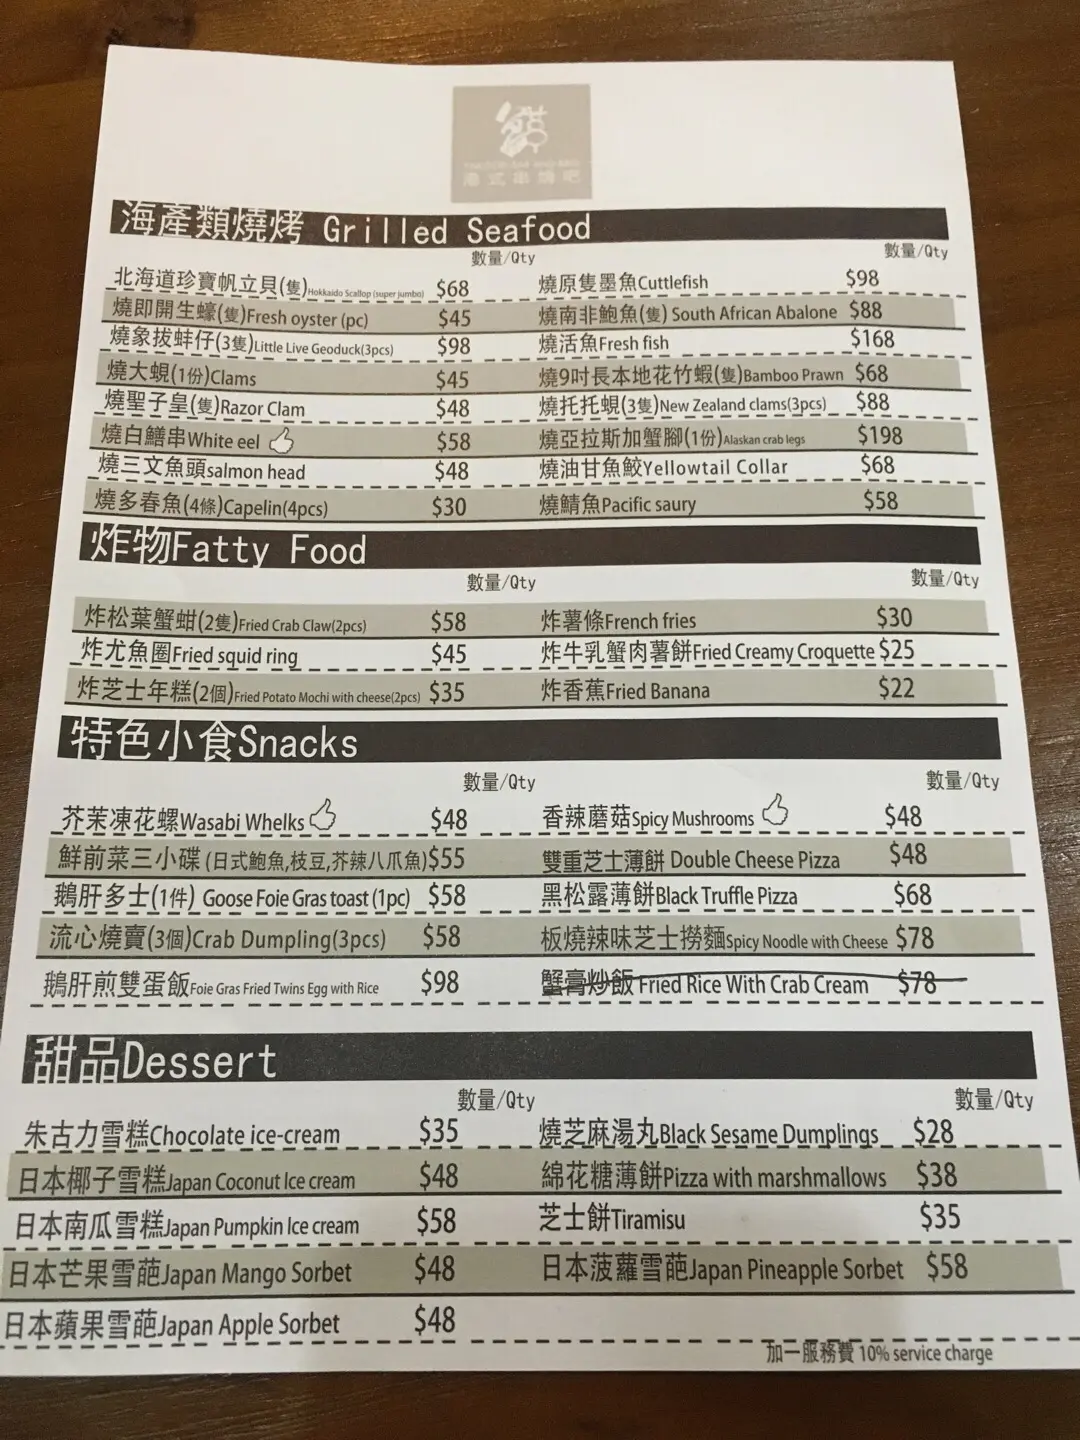 港式串燒吧
海產類燒烤 Grilled Seafood
數量/Qty 數量/Qty
北海道珍寶帆立貝(隻)Hokkaido Scallop (super jumbo) $68 燒原隻墨魚Cuttlefish $98
燒即開生蠔(隻)Fresh oyster (pc) $45 燒南非鮑魚(隻) South African Abalone $88
燒象拔蚌仔(3隻)Little Live Geoduck(3pcs) $98 燒活魚Fresh fish $168
燒大蜆(1份)Clams $45 燒9吋長本地花竹蝦(隻)Bamboo Prawn $68
燒聖子皇(隻)Razor Clam $48 燒托托蜆(3隻)New Zealand clams(3pcs) $88
燒白鱔串White eel $58 燒亞拉斯加蟹腳(1份)Alaskan crab legs $198
燒三文魚頭salmon head $48 燒油甘魚鮫Yellowtail Collar $68
燒多春魚(4條)Capelin(4pcs) $30 燒鯖魚Pacific saury $58
炸物Fatty Food
數量/Qty 數量/Qty
炸松葉蟹蚶(2隻)Fried Crab Claw(2pcs) $58 炸薯條French fries $30
炸尤魚圈Fried squid ring $45 炸牛乳蟹肉薯餅Fried Creamy Croquette $25
炸芝士年糕(2個)Fried Potato Mochi with cheese(2pcs) $35 炸香蕉Fried Banana $22
特色小食Snacks
數量/Qty 數量/Qty
芥茉凍花螺Wasabi Whelks $48 香辣蘑菇Spicy Mushrooms $48
鮮前菜三小碟 (日式鮑魚,枝豆,芥辣八爪魚)$55 雙重芝士薄餅 Double Cheese Pizza $48
鵝肝多士(1件) Goose Foie Gras toast (1pc) $58 黑松露薄餅Black Truffle Pizza $68
流心燒賣(3個)Crab Dumpling(3pcs) $58 板燒辣味芝士撈麵Spicy Noodle with Cheese $78
鵝肝煎雙蛋飯Foie Gras Fried Twins Egg with Rice $98 蟹膏炒飯 Fried Rice With Crab Cream $78
甜品Dessert
數量/Qty 數量/Qty
朱古力雪糕Chocolate ice-cream $35 燒芝麻湯丸Black Sesame Dumplings $28
日本椰子雪糕Japan Coconut Ice cream $48 綿花糖薄餅Pizza with marshmallows $38
日本南瓜雪糕Japan Pumpkin Ice cream $58 芝士餅Tiramisu $35
日本芒果雪葩Japan Mango Sorbet $48 日本菠蘿雪葩Japan Pineapple Sorbet $58
日本蘋果雪葩Japan Apple Sorbet $48
加一服務費 10% service charge